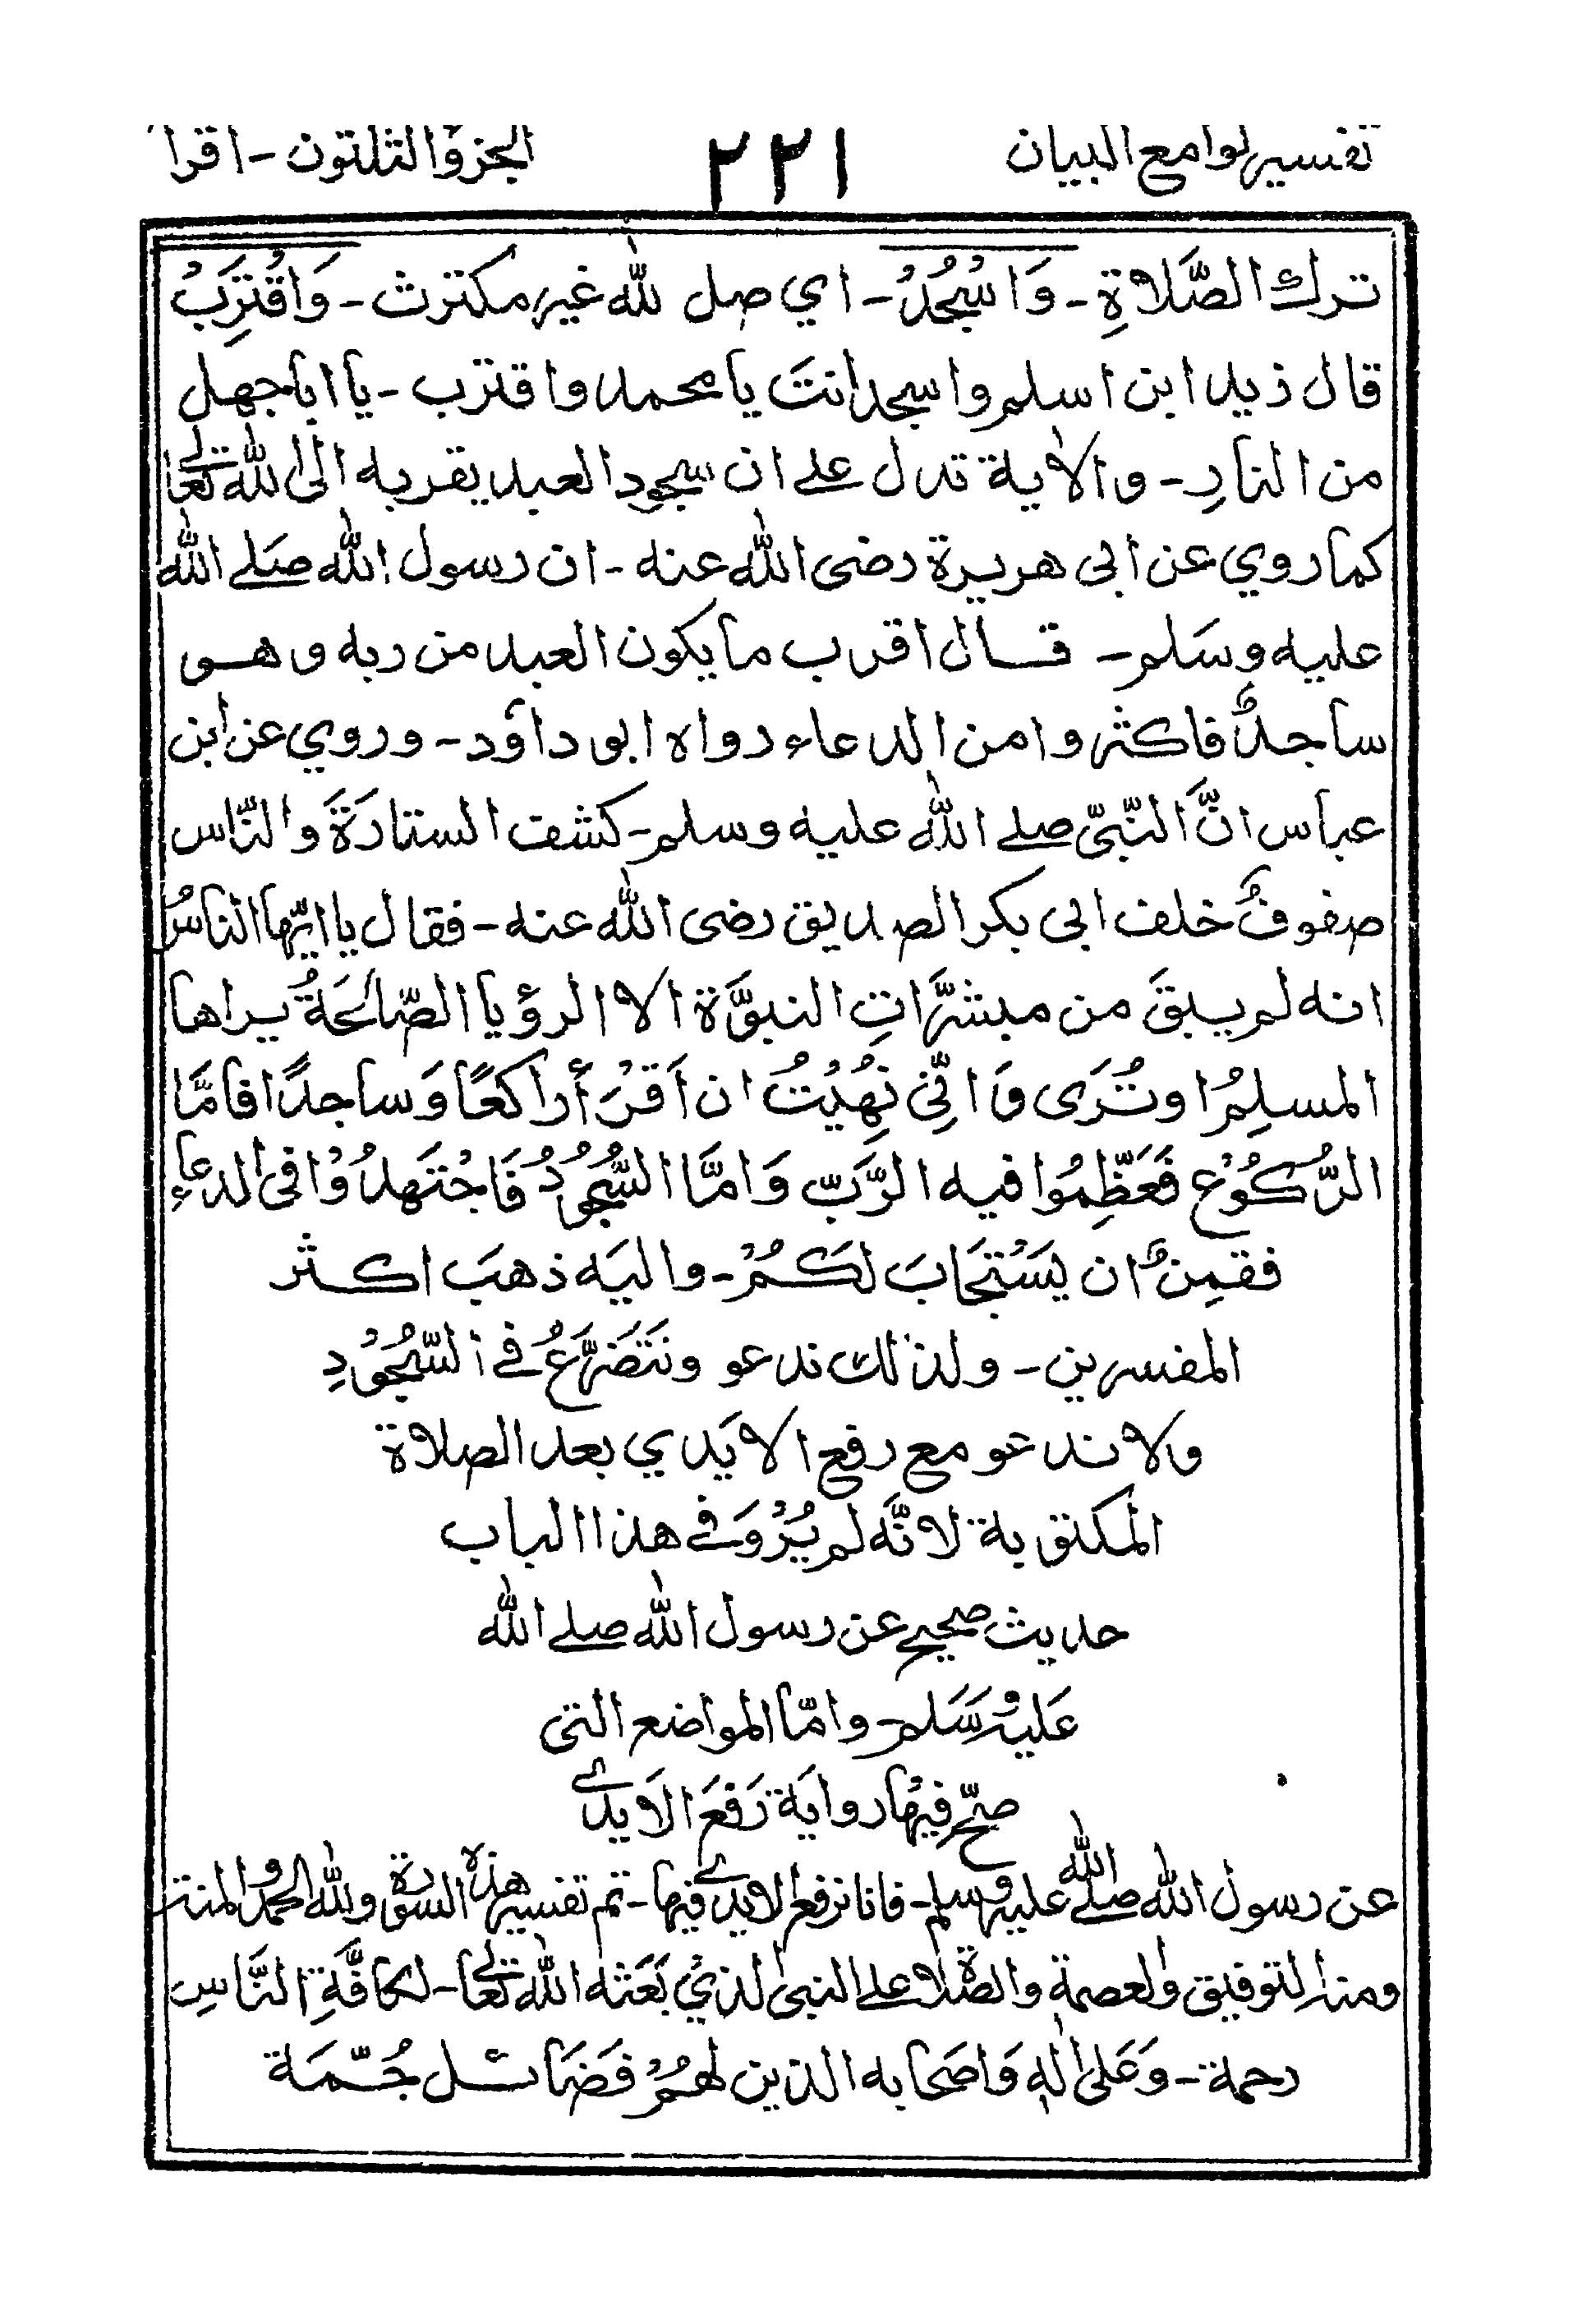 تفسير لوامع البيان ٢٢١ الجزؤ الثلثون - اقرا
ترك الصَّلاةِ - وَاسْجُدْ - اي صل لله غير مكترث - وَاقْتَرِبْ
قال زيد ابن اسلم واسجد انتَ يا محمد واقترب - يا ابا جهل
من النارِ - والآية تدل على ان سجود العبد يقربه الى الله تعالى
كما روي عن ابى هريرة رضى الله عنه - ان رسول الله صَلى الله
عليه وسَلم - قال اقرب ما يكون العبد من ربه وهو
ساجدٌ فاكثروا من الدعاء رواه ابو داؤد - وروي عن ابن
عباس انَّ النّبىّ صلى الله عليه وسلم - كشف الستارَةَ والنّاس
صفوفٌ خلف ابى بكر الصديق رضى الله عنه - فقال يا ايّها الناسُ
انه لم يبقَ من مبشّرَاتِ النبوَّة الا الرؤيا الصّالحَةُ يراها
المسلِمُ او تُرَى وَانِّى نُهِيْتُ ان اَقْرَأ راكعًا وَساجدًا فامَّا
الرُّكُوْعِ فَعَظِّمُوا فيه الرَّبّ وَامَّا السُّجُوْدُ فَاجْتَهِدُوْا فى الدعاءِ
فقمِنٌ ان يَسْتَجَابَ لَكُمْ - واليَه ذهبَ اكثر
المفسرين - ولذلك ندعو ونَتَضَرَّعُ فى السُّجُوْدِ
ولا ندعو مع رفع الايَدي بعد الصلاة
المكتوبة لانَّه لم يُرْوَ فى هذا الباب
حديث صحيح عن رسول الله صلى الله
عَليه وسَلم - وامّا المواضع التى
صحّ فيها رواية رَفعَ الاَيدى
عن رسول الله صلى الله عليه وسلم - فانا نرفع الايدى فيها - تم تفسير هذه السورة ولله الحمد والمنة
ومنه التوفيق والعصمة والصلاة على النبى الذي بَعَثه الله تعالى - لكافَّةِ النَّاسِ
رحمة - وَعَلى اٰلهٖ وَاصَحابه الذين لهُمْ فَضَائل جُمّمَة